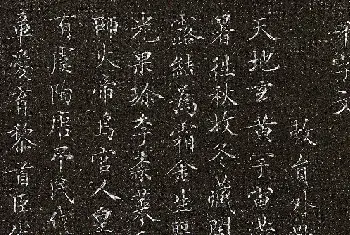 千字文
敕員外散
天地玄黃宇宙洪
暑往秋收冬藏閏
露結為霜金生麗
光果珍李柰菜
師火帝鳥官人皇
有虞陶唐弔民伐
章愛育黎首臣伏